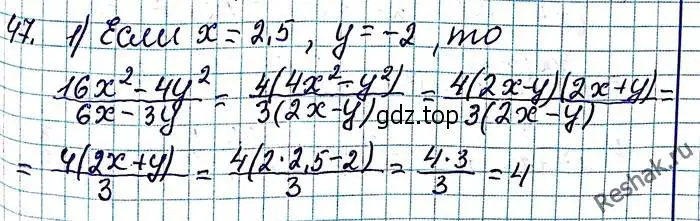 47. 1) Если x = 2,5 , y = -2 , то
(16x² - 4y²)/(6x - 3y) = 4(4x² - y²)/3(2x - y) = 4(2x - y)(2x + y)/3(2x - y) =
= 4(2x + y)/3 = 4(2·2,5 - 2)/3 = 4·3/3 = 4
gdz.top
Reshak.ru